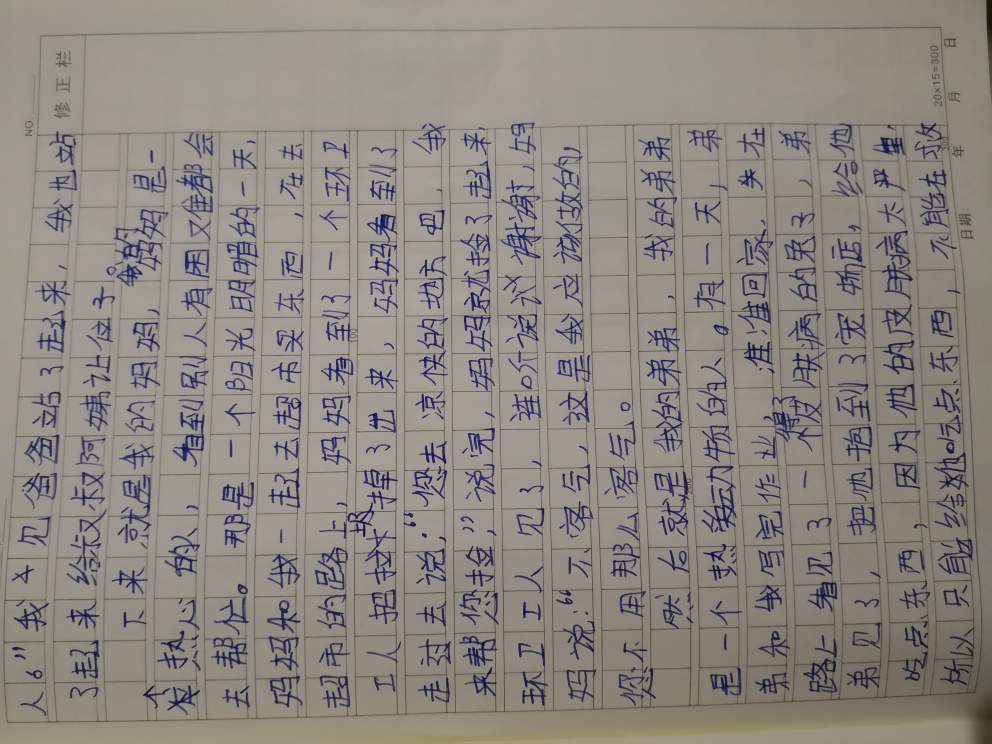 NO
修正栏
人。”我才见爸爸站了起来，我也站
了起来给叔叔阿姨让位子。
下来就是我的妈妈，我的妈妈是一
热心的人，看到别人有困难都会
去帮忙。那是一个阳光明媚的一天，
妈妈和我一起去超市买东西，在去
超市的路上，妈妈看到了一个环卫
工人把垃圾掉了出来，妈妈看到了
走过去说：“您去凉快的地方吧，我
来帮您捡，”说完，妈妈就捡了起来，
环卫工人见了，连忙说谢谢，妈
妈说：“不客气，这是我应该做的，
您不用那么客气。
然后就是我的弟弟，我的弟弟
是一个热爱动物的人。有一天，弟
弟和我写完作业准准回家，失在
路上看见了一个得了皮肤病的兔子，弟
弟见了，把他抱到了宠物店，给他
吃点东西，因为他的皮肤病太严重，
所以只能给他吃点东西，不能在救
20×15=300
日期： 年 月 日